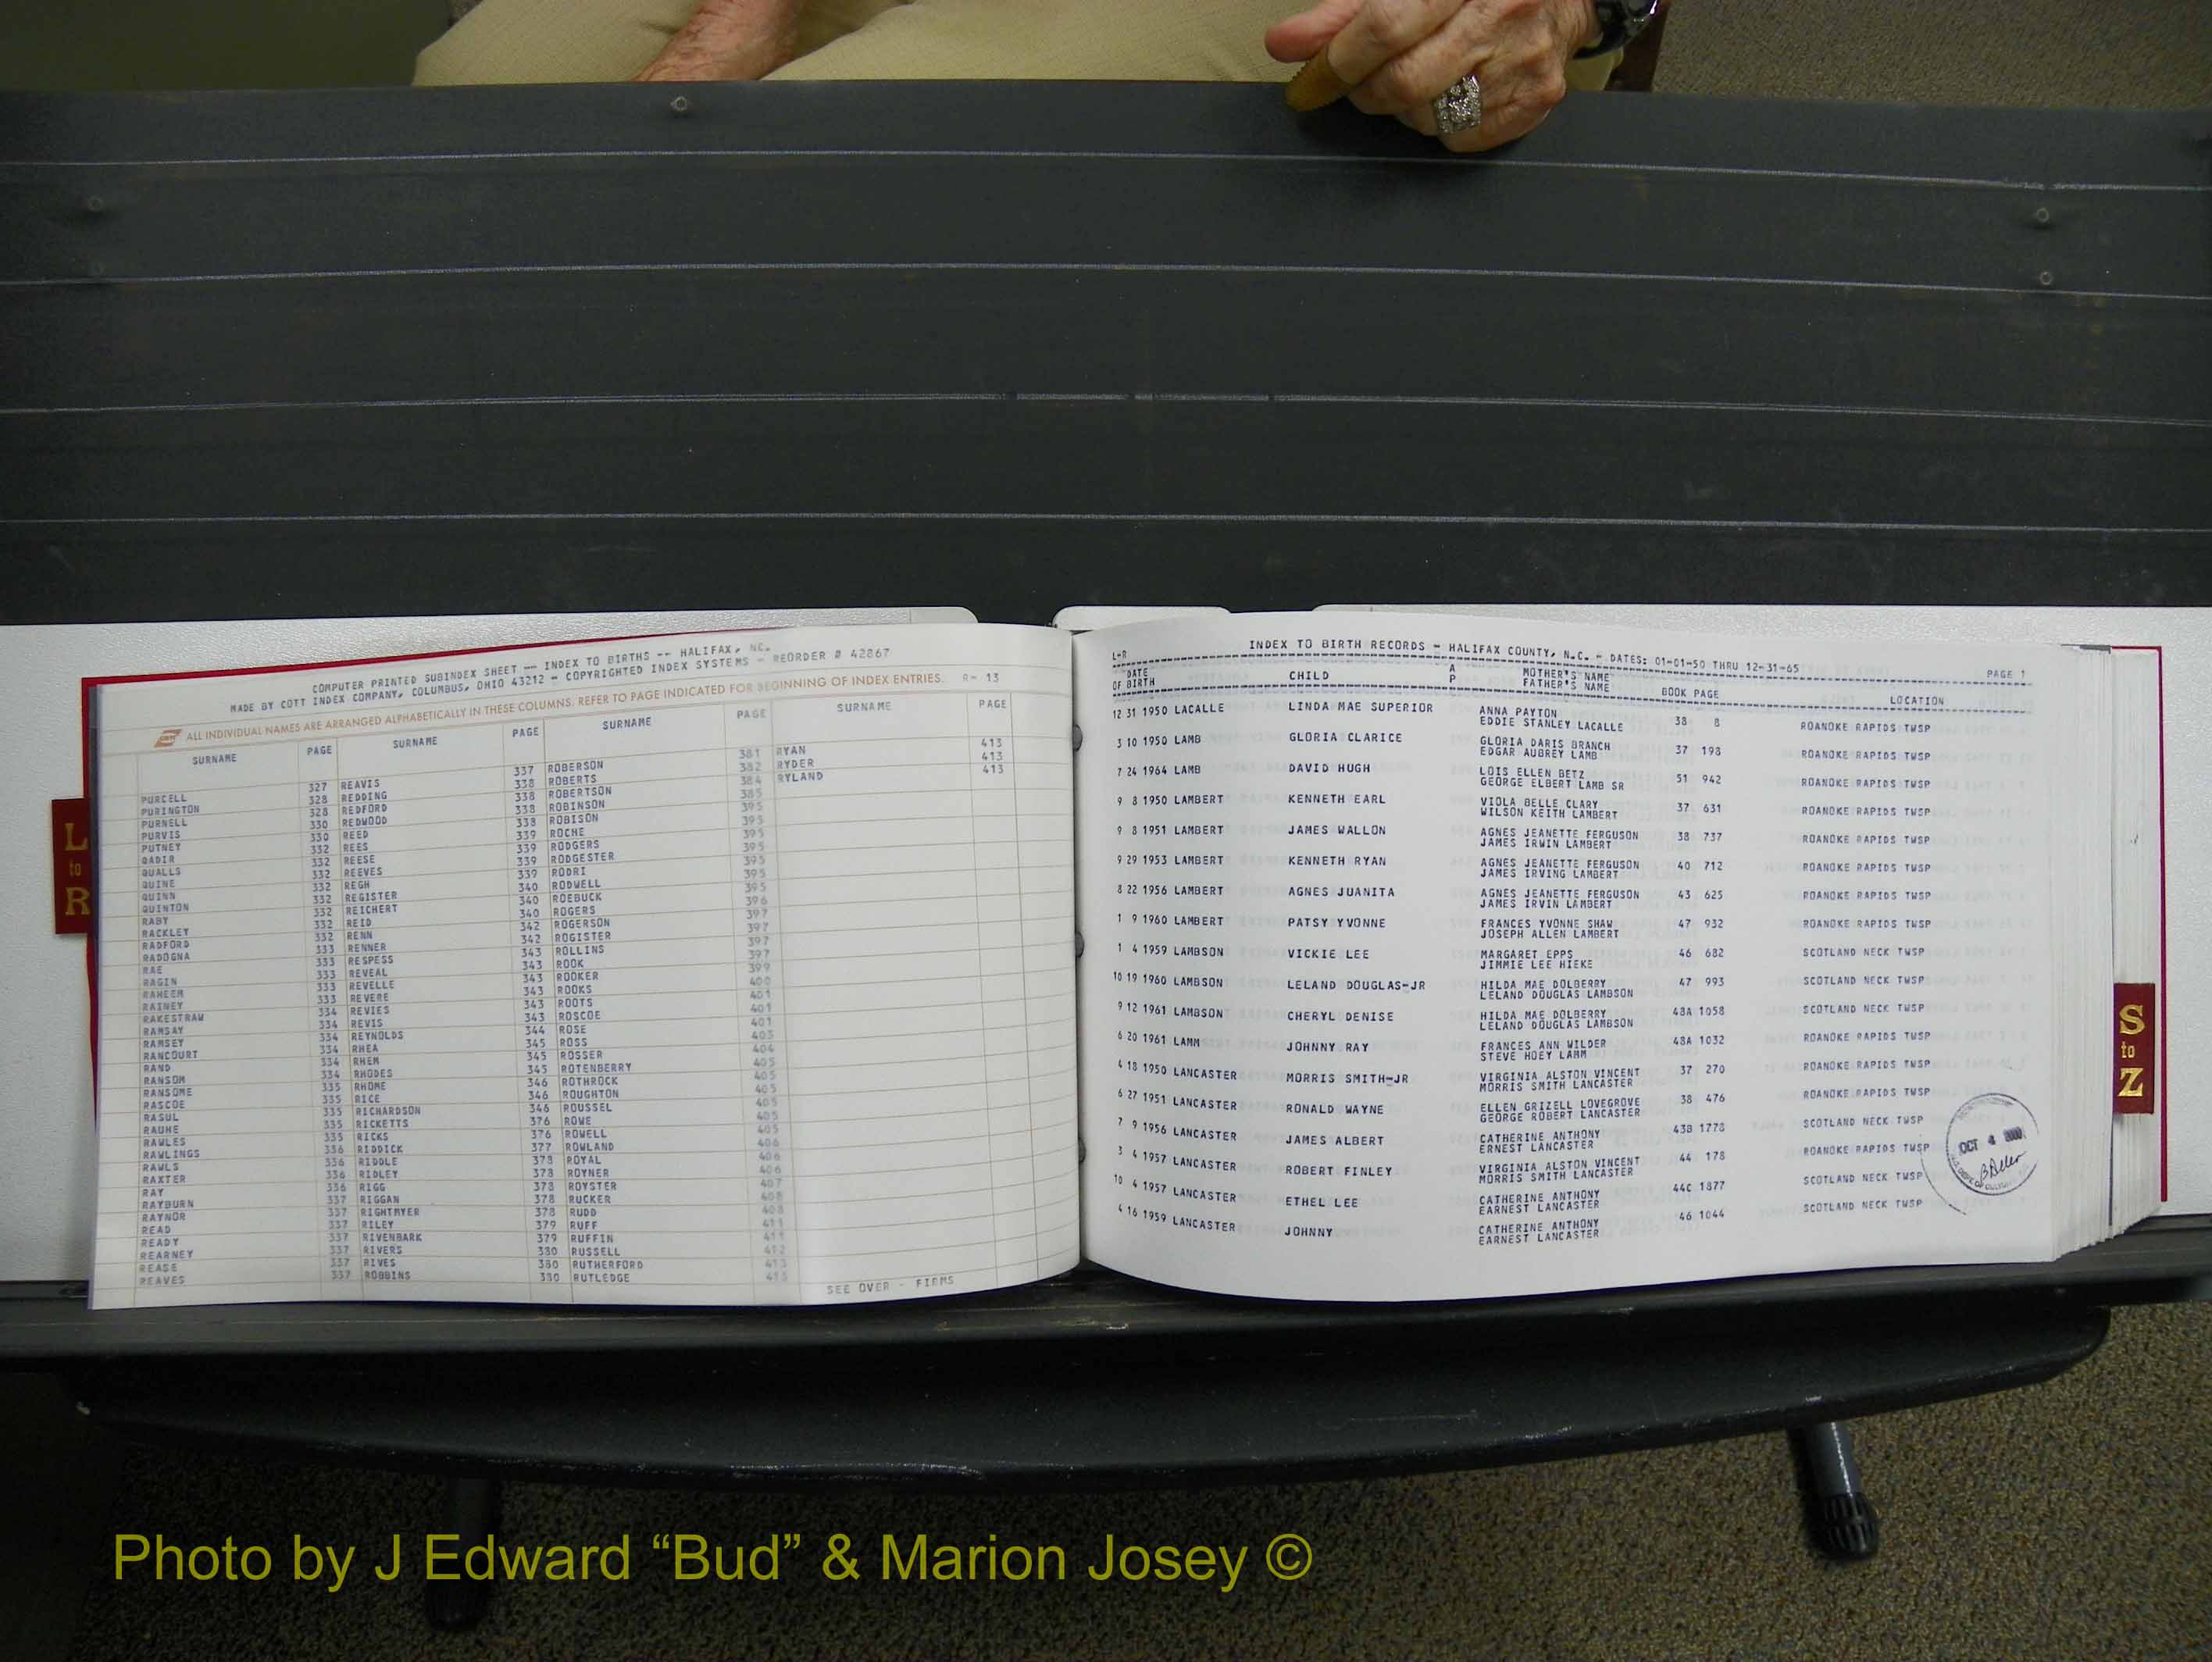 COMPUTER PRINTED SUBINDEX SHEET -- INDEX TO BIRTHS -- HALIFAX, NC.
MADE BY COTT INDEX COMPANY, COLUMBUS, OHIO 43212 - COPYRIGHTED INDEX SYSTEMS - REORDER # 42867
ALL INDIVIDUAL NAMES ARE ARRANGED ALPHABETICALLY IN THESE COLUMNS. REFER TO PAGE INDICATED FOR BEGINNING OF INDEX ENTRIES. R- 13
SURNAME PAGE SURNAME PAGE SURNAME PAGE SURNAME PAGE
PURCELL 327
PURINGTON 328
PURNELL 328
PURVIS 330
PUTNEY 330
QADIR 332
QUALLS 332
QUINE 332
QUINN 332
QUINTON 332
RABY 332
RACKLEY 332
RADFORD 332
RADOGNA 333
RAE 333
RAGIN 333
RAHEEM 333
RAINEY 333
RAKESTRAW 334
RAMSAY 334
RAMSEY 334
RANCOURT 334
RAND 334
RANSOM 334
RANSOME 335
RASCOE 335
RASUL 335
RAUHE 335
RAWLES 335
RAWLINGS 336
RAWLS 336
RAXTER 336
RAY 336
RAYBURN 337
RAYNOR 337
READ 337
READY 337
REARNEY 337
REASE 337
REAVES 337
REAVIS 337
REDDING 338
REDFORD 338
REDWOOD 338
REED 338
REES 339
REESE 339
REEVES 339
REGH 339
REGISTER 340
REICHERT 340
REID 340
RENN 342
RENNER 342
RESPESS 343
REVEAL 343
REVELLE 343
REVERE 343
REVIES 343
REVIS 343
REYNOLDS 344
RHEA 345
RHEM 345
RHODES 345
RHOME 346
RICE 346
RICHARDSON 346
RICKETTS 376
RICKS 376
RIDDICK 377
RIDDLE 378
RIDLEY 378
RIGG 378
RIGGAN 378
RIGHTMYER 378
RILEY 379
RIVENBARK 379
RIVERS 380
RIVES 380
ROBBINS 380
ROBERSON 381
ROBERTS 382
ROBERTSON 384
ROBINSON 385
ROBISON 395
ROCHE 395
RODGERS 395
RODGESTER 395
RODRI 395
RODWELL 395
ROEBUCK 395
ROGERS 396
ROGERSON 397
ROGISTER 397
ROLLINS 397
ROOK 397
ROOKER 399
ROOKS 400
ROOTS 401
ROSCOE 401
ROSE 401
ROSS 403
ROSSER 404
ROTENBERRY 405
ROTHROCK 405
ROUGHTON 405
ROUSSEL 405
ROWE 405
ROWELL 405
ROWLAND 406
ROYAL 406
ROYNER 406
ROYSTER 407
RUCKER 408
RUDD 408
RUFF 411
RUFFIN 411
RUSSELL 412
RUTHERFORD 413
RUTLEDGE 413
RYAN 413
RYDER 413
RYLAND 413
SEE OVER - FIRMS
L
to
R
L-R INDEX TO BIRTH RECORDS - HALIFAX COUNTY, N.C. - DATES: 01-01-50 THRU 12-31-65 PAGE 1
DATE OF BIRTH CHILD A P MOTHER'S NAME FATHER'S NAME BOOK PAGE LOCATION
12 31 1950 LACALLE LINDA MAE SUPERIOR ANNA PAYTON 38 8 ROANOKE RAPIDS TWSP
EDDIE STANLEY LACALLE
3 10 1950 LAMB GLORIA CLARICE GLORIA DARIS BRANCH 37 198 ROANOKE RAPIDS TWSP
EDGAR AUBREY LAMB
7 24 1964 LAMB DAVID HUGH LOIS ELLEN BETZ 51 942 ROANOKE RAPIDS TWSP
GEORGE ELBERT LAMB SR
9 8 1950 LAMBERT KENNETH EARL VIOLA BELLE CLARY 37 631 ROANOKE RAPIDS TWSP
WILSON KEITH LAMBERT
9 8 1951 LAMBERT JAMES WALLON AGNES JEANETTE FERGUSON 38 737 ROANOKE RAPIDS TWSP
JAMES IRWIN LAMBERT
9 29 1953 LAMBERT KENNETH RYAN AGNES JEANETTE FERGUSON 40 712 ROANOKE RAPIDS TWSP
JAMES IRVING LAMBERT
8 22 1956 LAMBERT AGNES JUANITA AGNES JEANETTE FERGUSON 43 625 ROANOKE RAPIDS TWSP
JAMES IRVIN LAMBERT
1 9 1960 LAMBERT PATSY YVONNE FRANCES YVONNE SHAW 47 932 ROANOKE RAPIDS TWSP
JOSEPH ALLEN LAMBERT
1 4 1959 LAMBSON VICKIE LEE MARGARET EPPS 46 682 SCOTLAND NECK TWSP
JIMMIE LEE HIEKE
10 19 1960 LAMBSON LELAND DOUGLAS-JR HILDA MAE DOLBERRY 47 993 SCOTLAND NECK TWSP
LELAND DOUGLAS LAMBSON
9 12 1961 LAMBSON CHERYL DENISE HILDA MAE DOLBERRY 48A 1058 SCOTLAND NECK TWSP
LELAND DOUGLAS LAMBSON
6 20 1961 LAMM JOHNNY RAY FRANCES ANN WILDER 48A 1032 ROANOKE RAPIDS TWSP
STEVE HOEY LAMM
4 18 1950 LANCASTER MORRIS SMITH-JR VIRGINIA ALSTON VINCENT 37 270 ROANOKE RAPIDS TWSP
MORRIS SMITH LANCASTER
6 27 1951 LANCASTER RONALD WAYNE ELLEN GRIZELL LOVEGROVE 38 476 ROANOKE RAPIDS TWSP
GEORGE ROBERT LANCASTER
7 9 1956 LANCASTER JAMES ALBERT CATHERINE ANTHONY 43B 1778 SCOTLAND NECK TWSP
ERNEST LANCASTER
3 4 1957 LANCASTER ROBERT FINLEY VIRGINIA ALSTON VINCENT 44 178 ROANOKE RAPIDS TWSP
MORRIS SMITH LANCASTER
10 4 1957 LANCASTER ETHEL LEE CATHERINE ANTHONY 44C 1877 SCOTLAND NECK TWSP
EARNEST LANCASTER
4 16 1959 LANCASTER JOHNNY CATHERINE ANTHONY 46 1044 SCOTLAND NECK TWSP
EARNEST LANCASTER
OCT 4
B Allen
S
to
Z
Photo by J Edward “Bud” & Marion Josey ©